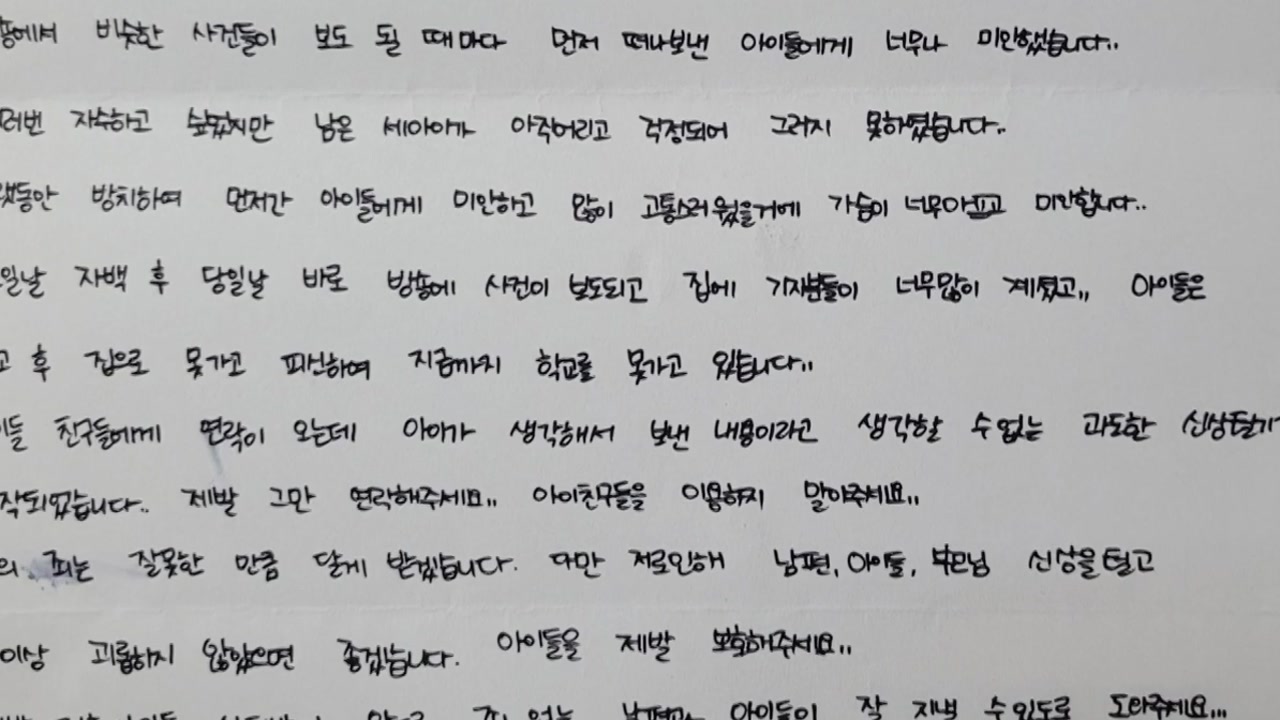 비슷한 사건들이 보도 될 때마다 먼저 떠나보낸 아이들에게 너무나 미안했습니다..
자수하고 싶었지만 남은 세아이가 아직어리고 걱정되어 그러지 못하였습니다..
방치하여 먼저간 아이들에게 미안하고 많이 고통스러웠을거에 가슴이 너무아프고 미안합니다..
자백 후 당일날 바로 방송에 사건이 보도되고 집에 기자분들이 너무많이 계셨고,, 아이들은
후 집으로 못가고 피신하여 지금까지 학교를 못가고 있습니다..
친구들에게 연락이 오는데 아이가 생각해서 보낸 내용이라고 생각할 수없는 과도한 신상털기
작되었습니다.. 제발 그만 연락해주세요.. 아이친구들을 이용하지 말아주세요..
의 죄는 잘못한 만큼 달게 받겠습니다. 다만 저로인해 남편, 아이들, 부모님 신상을 털고
이상 괴롭히지 않았으면 좋겠습니다. 아이들을 제발 보호해주세요..
죄 없는 남편과 아이들이 잘 지낼 수있도록 도와주세요...